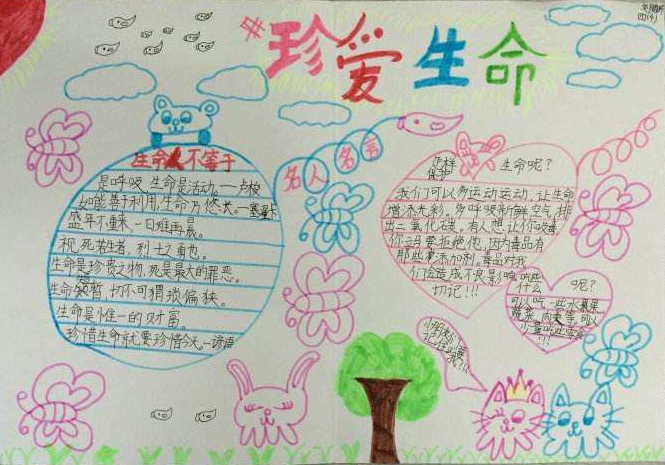 四(4)
#珍爱生命
名人名言
生命不等于
是呼吸,生命是活动。—卢梭
如能善于利用,生命乃悠长。—塞涅卡
盛年不重来,一日难再晨。
死者生者,烈士之勇也。
生命是珍贵之物,死是最大的罪恶。
生命 切不可猥琐偏狭。
生命是惟一的财富。
珍惜生命就要珍惜今天—谚语
怎样
保护
生命呢?
我们可以多运动运动,让生命
增添光彩。多呼吸新鲜空气,排
出二氧化碳。有人想让你吸毒
你 要拒绝他,因为毒品有
那些 添加剂,毒品对我
们会造成不良影响,
切记!!!
吃些
什么
呢?
可以吃一些水果
蔬菜,肉类等,可以
少量吃些零食
!!!
小朋友们
记住了
吗?!!